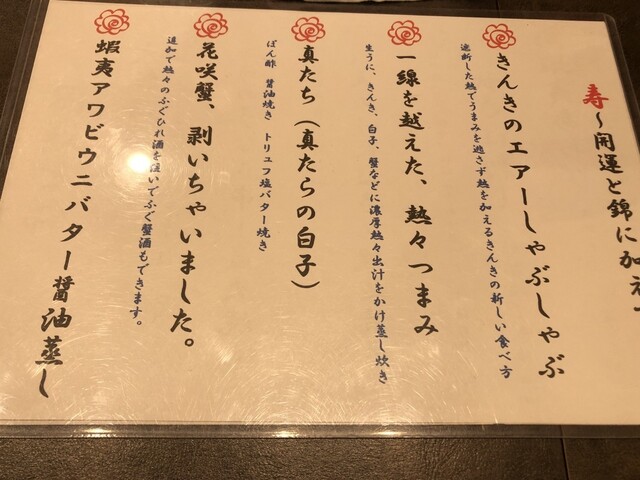 寿～開運と錦に加え
きんきのエアーしゃぶしゃぶ
遮断した熱でうまみを逃さず熱を加えるきんきの新しい食べ方
一線を越えた、熱々つまみ
生うに、きんき、白子、蟹などに濃厚熱々出汁をかけ蒸し炊き
真たち（真たらの白子）
ぽん酢 醤油焼き トリュフ塩バター焼き
花咲蟹、剥いちゃいました。
追加で熱々のふぐひれ酒を注いでふぐ蟹酒もできます。
蝦夷アワビウニバター醤油蒸し